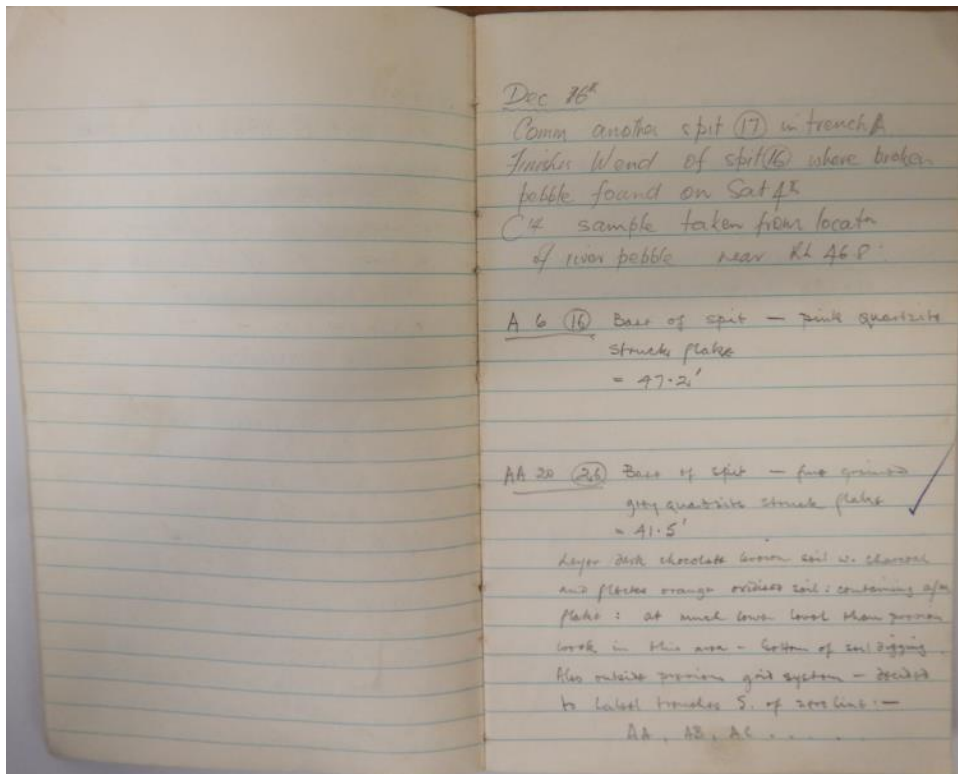 Dec 16th
Comm another spit (17) in trench A
Finishes W end of spit (16) where broken
pebble found on Sat 4th
C14 sample taken from locatn
of river pebble near RL 46.8
A 6 (16) Base of spit — pink quartzite
struck flake
= 47.2'
AA 20 (26) Base of spit — fine grained
grey quartzite struck flake
= 41.5'
Layer dark chocolate brown soil w. charcoal
and flecks orange oxidised soil : containing a/m
flake : at much lower level than previous
work in this area - bottom of soil digging.
Also outside previous grid system — decided
to label trenches S. of zero line :—
AA, AB, AC . . . .